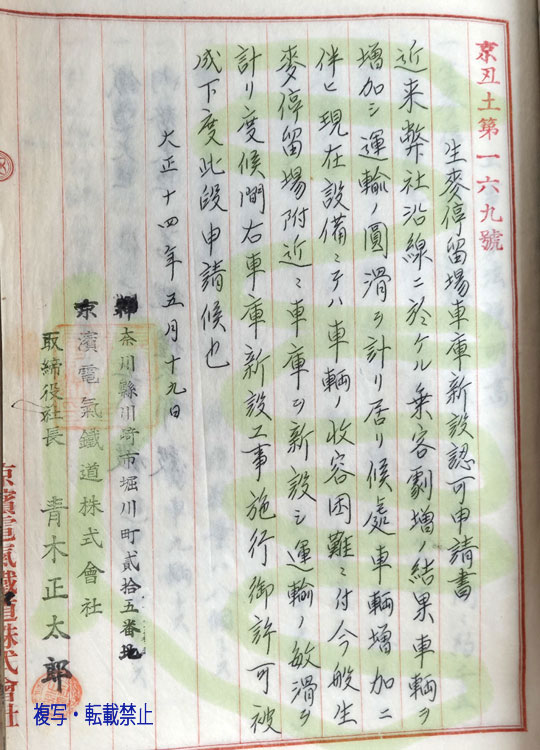 京丑土第一六九號
生麥停留場車庫新設認可申請書
近来弊社沿線ニ於ケル乗客劇増ノ結果車輌ヲ
増加シ運輸ノ圓滑ヲ計リ居リ候處車輌増加ニ
伴ヒ現在設備ニテハ車輌ノ收容困難ニ付今般生
麥停留場附近ニ車庫ヲ新設シ運輸ノ敏滑ヲ
計リ度候間右車庫新設工事施行御許可被
成下度此段申請候也
大正十四年五月十九日
神奈川縣川崎市堀川町貳拾五番地
京濱電氣鐵道株式會社
取締役社長 青木正太郎
京濱電氣鐵道株式會社
複写・転載禁止